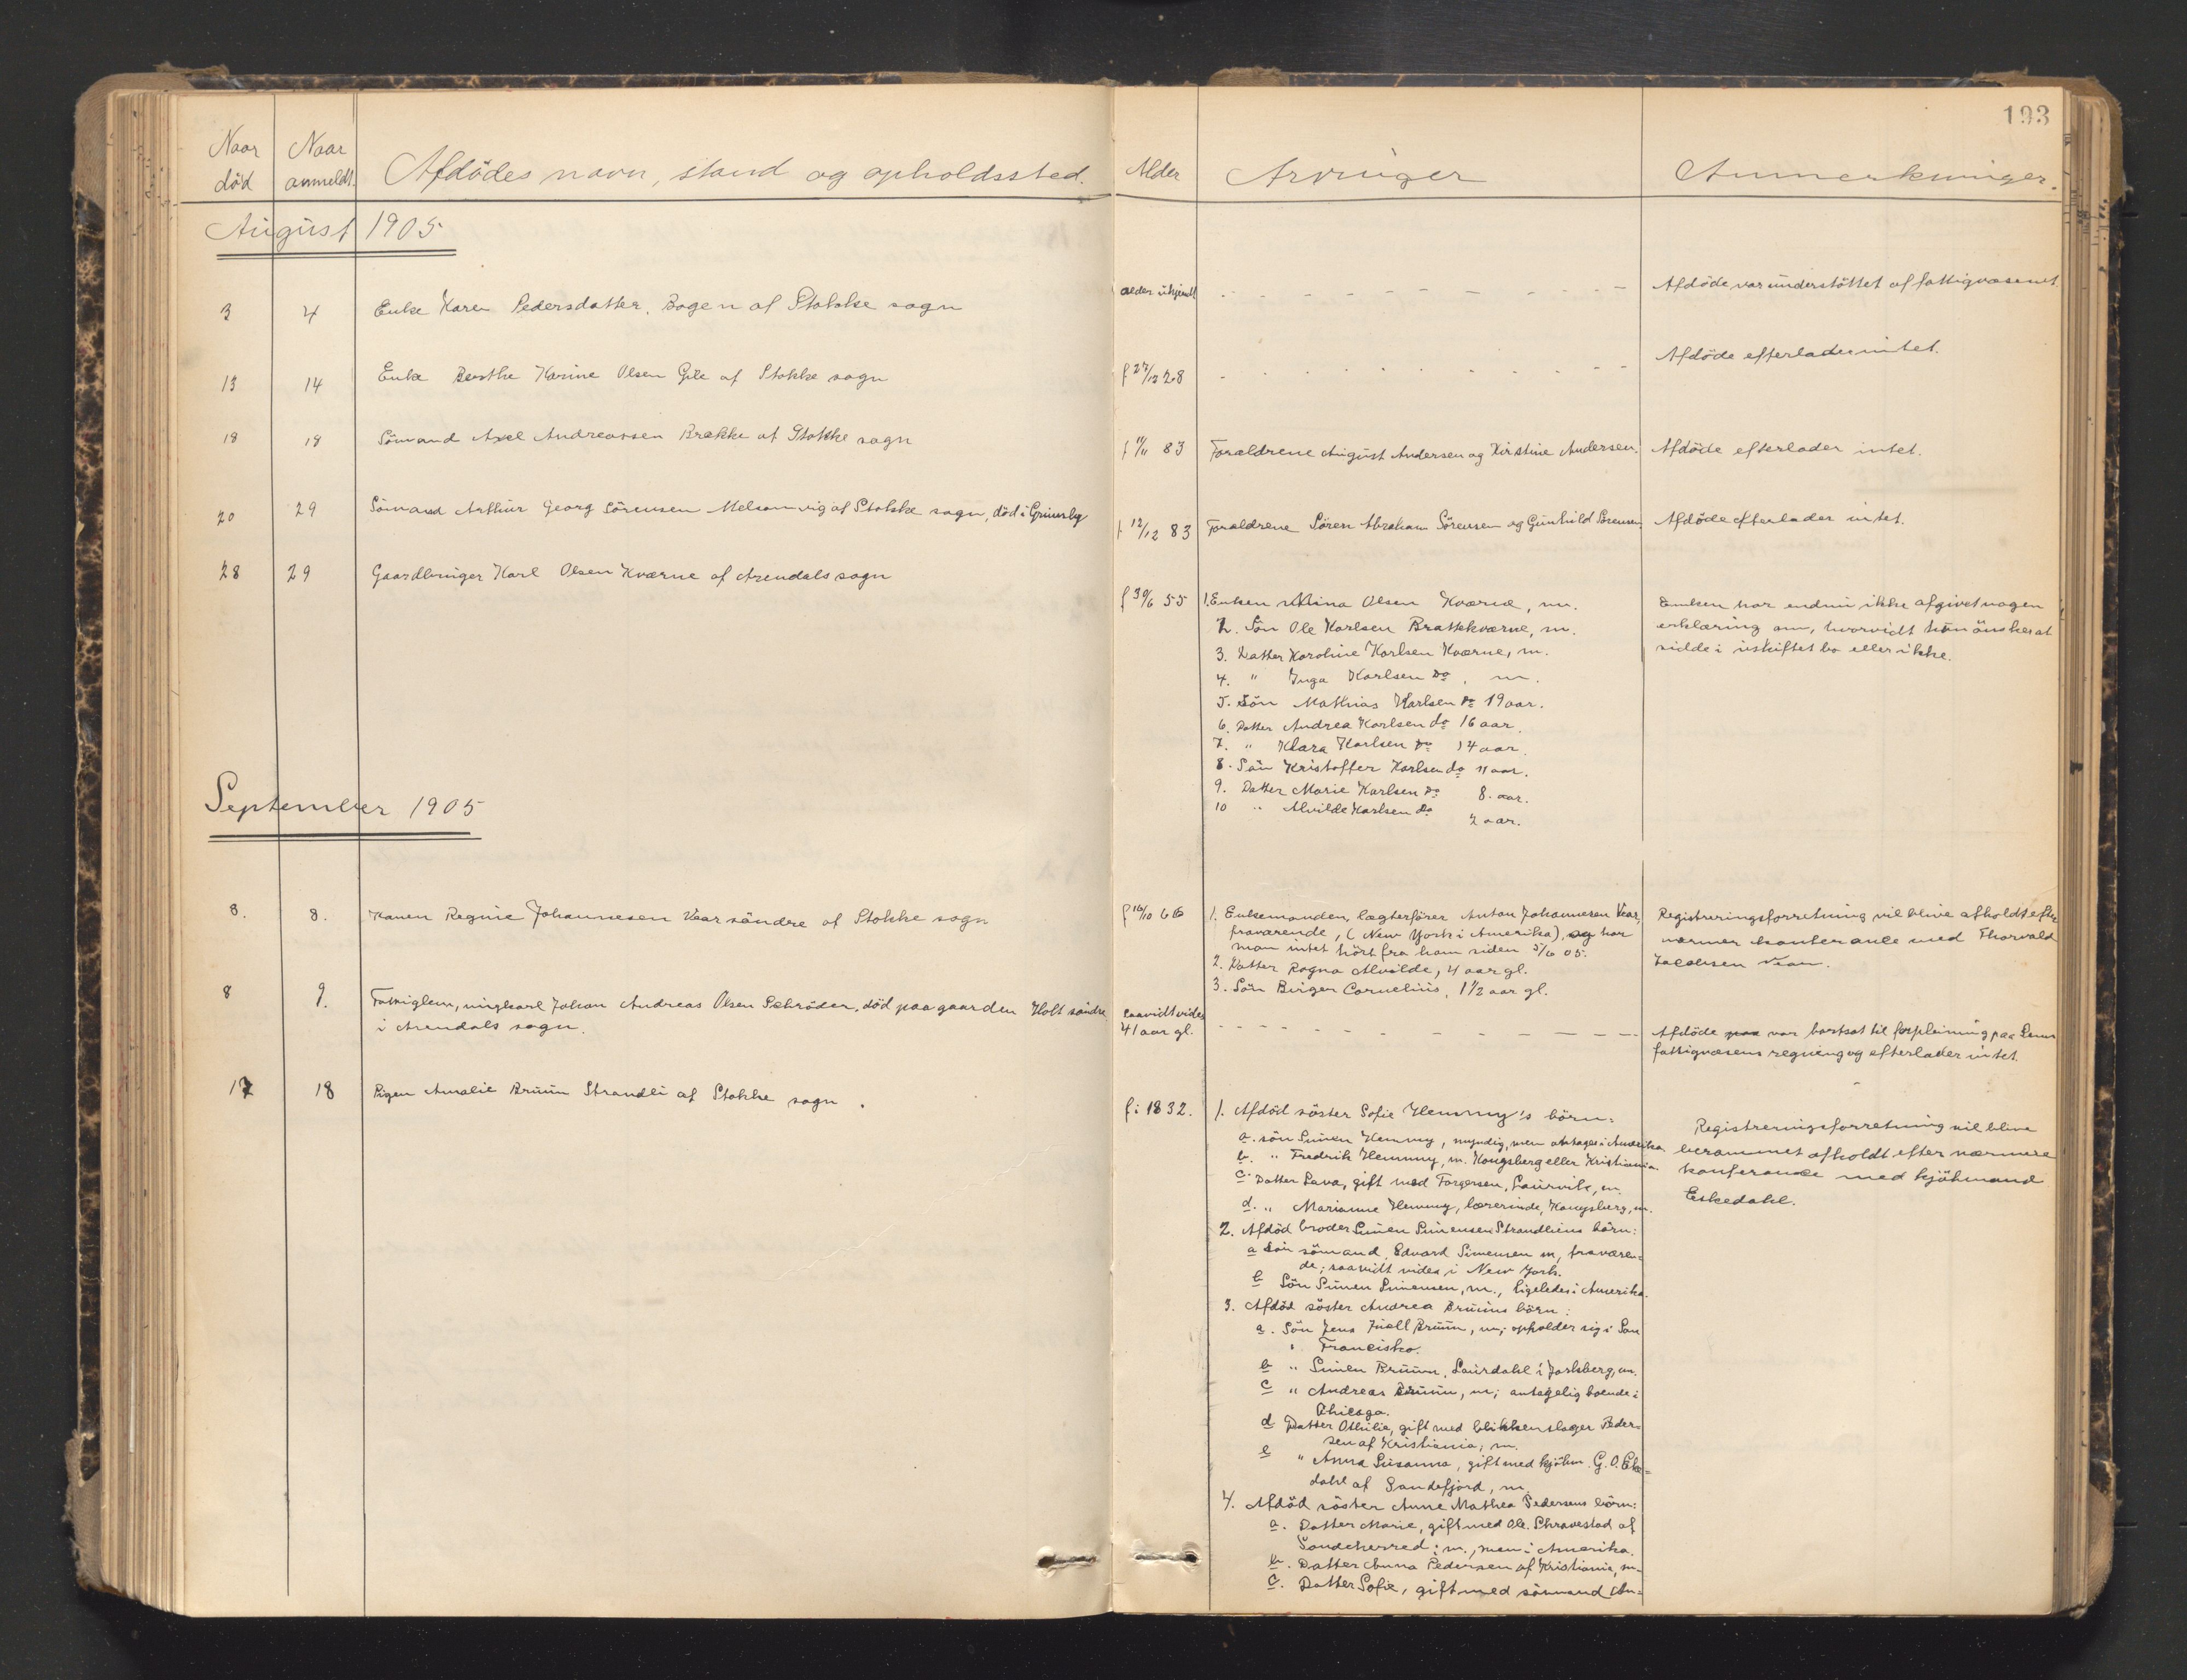 193
Naar død
Naar anmeldt.
Afdödes navn, stand og opholdssted.
Alder
Arvinger
Anmerkninger.
August 1905
3 4 Enke Karen Pedersdatter, Bogen af Stokke sogn
alder ukjendt
Afdöde var understöttet af fattigvæsenet.
13 14 Enke Berthe Karine Olsen Gile af Stokke sogn
f 27/12 28
Afdöde efterlader intet.
18 18 Sömand Axel Andreassen Brække af Stokke sogn
f 11/11 83 Forældrene August Andersen og Kirstine Andersen. Afdöde efterlader intet.
20 29 Sömand Arthur Georg Sörensen Melsomvig af Stokke sogn, död i Grimsby
f 12/12 83 Forældrene Sören Abraham Sörensen og Gunhild Sörensen. Afdöde efterlader intet.
28 29 Gaardbruger Karl Olsen Kværne af Arendals sogn
f 30/6 55 1. Enken Mina Olsen Kværne, m.
2. Sön Ole Karlsen Brattkværne, m.
3. Datter Karoline Karlsen Kværne, m.
4. " Inga Karlsen do, m.
5. Sön Mathias Karlsen do 19 aar.
6. Datter Andrea Karlsen do 16 aar.
7. " Klara Karlsen do 14 aar.
8. Sön Kristoffer Karlsen do 11 aar.
9. Datter Marie Karlsen do 8. aar.
10 " Alvilde Karlsen do
2 aar.
Enken har endnu ikke afgivet nogen
erklæring om, hvorvidt hun önsker at
sidde i uskiftet bo eller ikke.
September 1905
8. 8. Konen Regine Johannesen Vear söndre af Stokke sogn
f 16/10 66 1. Enkemanden, lægterförer Anton Johannesen Vear,
fraværende, (New York i Amerika), og har
man intet hört fra ham siden 5/6 05.
2. Datter Ragna Alvilde, 4 aar gl.
3. Sön Birger Cornelius, 1½ aar gl.
Registreringsforretning vil blive afholdt efter
nærmer konferanse med Thorvald
Jacobsen Vear.
8 9. Fattiglem, ungkarl Johan Andreas Olsen Schröder, död paa gaarden Holt söndre
i Arendals sogn.
saavidt vides
41 aar gl.
Afdöde paa var bortsat til forpleining paa Sems
fattigvæsens regning og efterlader intet.
17 18 Pigen Amalie Bruun Strandli af Stokke sogn.
f. i 1832. 1. Afdöd söster Sofie Hemmy's börn:
a. sön Simen Hemmy, myndig, men antages i Amerika
b. " Fredrik Hemmy, m. Kongsberg eller Kristiania.
c. Datter Lava, gift med Torgersen, Laurvik, m.
d. " Marianne Hemmy, lærerinde, Kongsberg, m.
2. Afdöd broder Simen Simensen Strandliens börn:
a Sön sömand, Edvard Simensen m, fraværen=
de; saavidt vides i New York.
b Sön Simen Simensen, m., ligeledes i Amerika.
3. Afdöd söster Andrea Bruuns börn:
a. Sön Jens Juell Bruun, m; opholder sig i San
Francisko.
b " Simen Bruun, Laurdahl i Jarlsberg, m.
c " Andreas Bruun, m; antagelig boende i
Chicago.
d Datter Othilie, gift med blikkenslager Peder=
sen af Kristiania, m.
e " Anna Susanna, gift med kjöbm. G. O. Eske=
dahl af Sandefjord, m.
4. Afdöd söster Anne Mathea Pedersens börn:
a. Datter Marie, gift med Ole Skravestad af
Sandeherred; m., men i Amerika.
b. Datter Anna Pedersen af Kristiania, m.
c. Datter Sofie, gift med sömand An=
Registreringsforretning vil blive
berammet afholdt efter nærmere
konferanse med kjöbmand
Eskedahl.